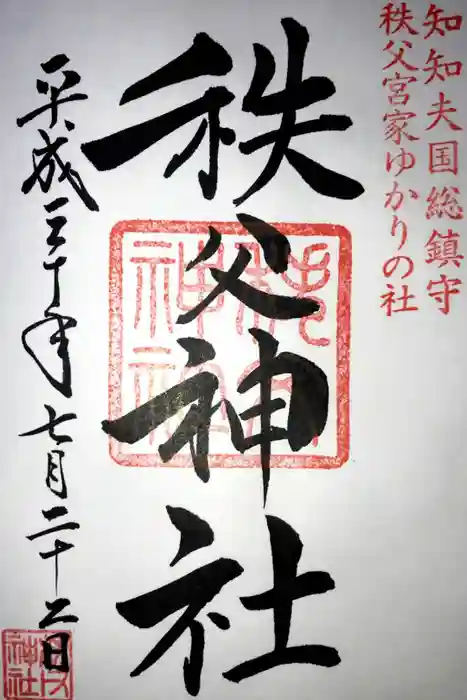 知知夫国総鎮守
秩父宮家ゆかりの社
秩父神社
平成三十年七月二十二日